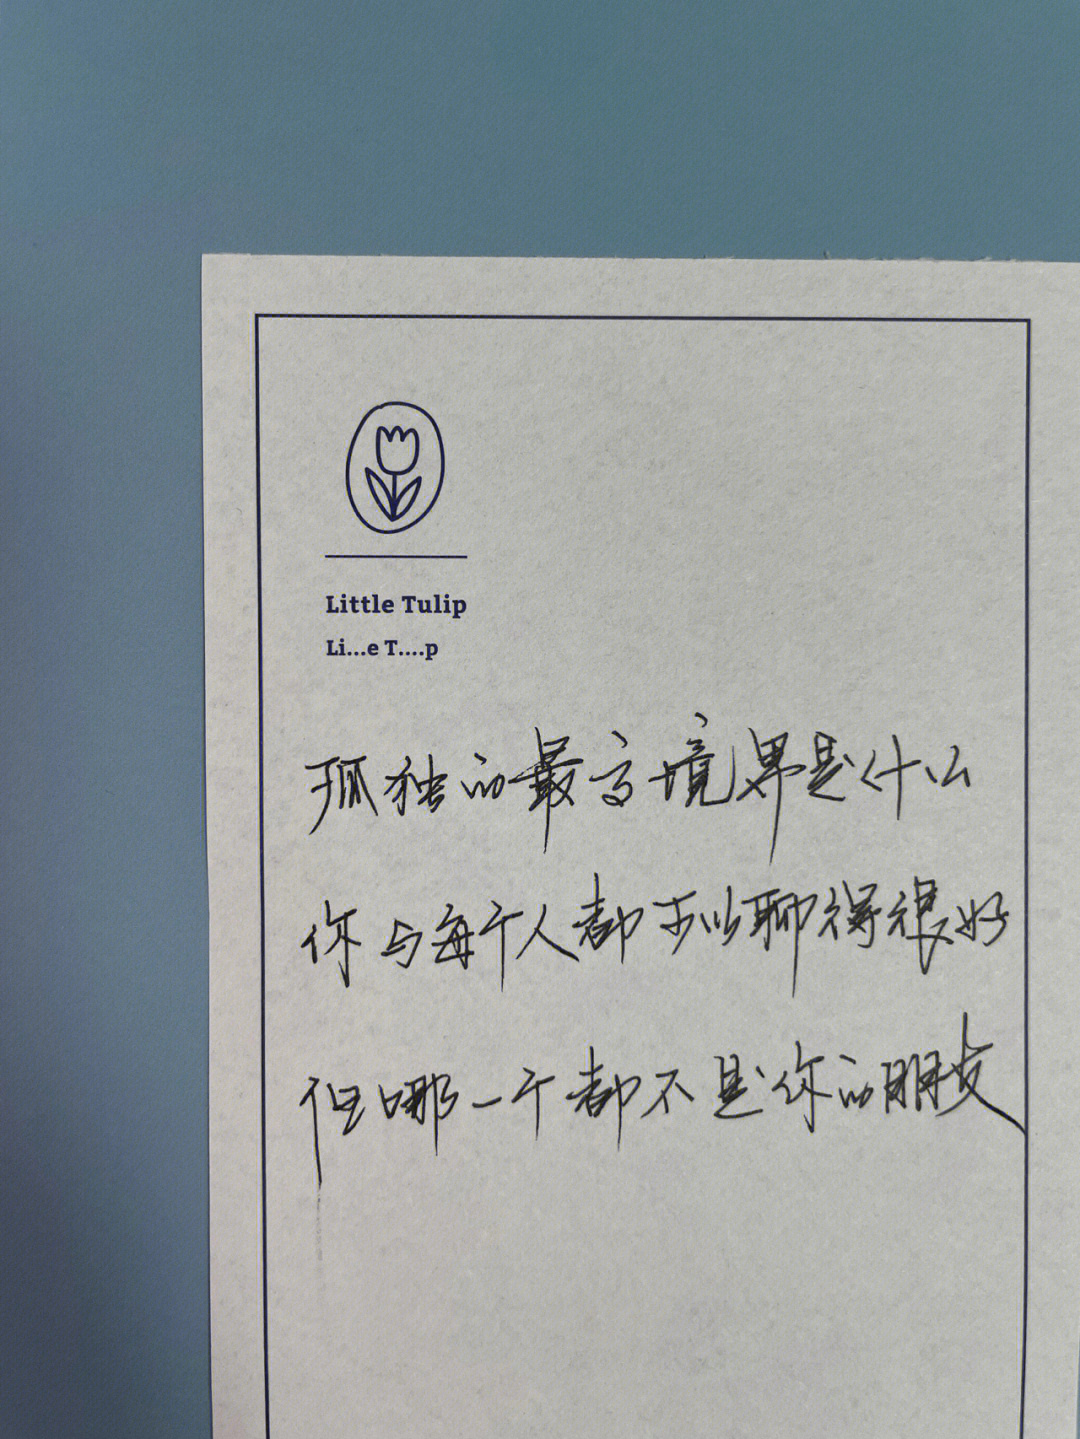 Little Tulip
Li...e T....p
孤独的最高境界是什么
你与每个人都可以聊得很好
但哪一个都不是你的朋友